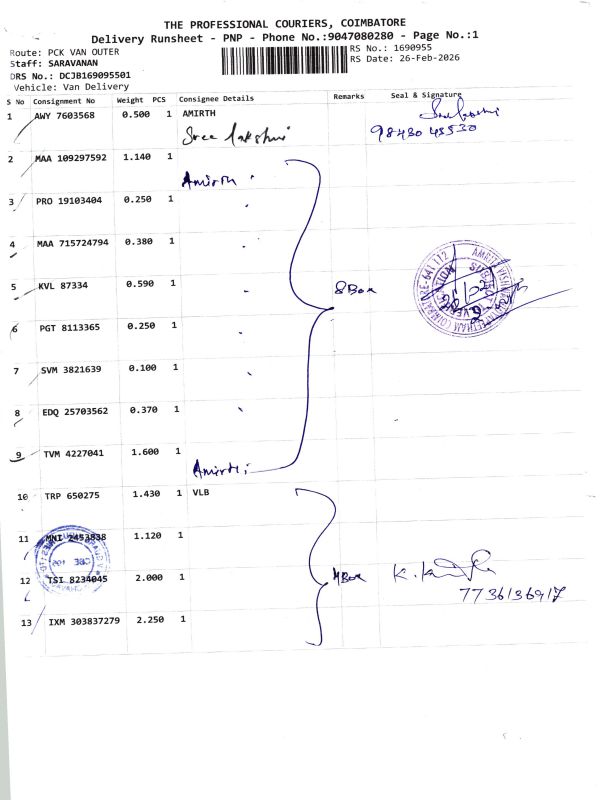 THE PROFESSIONAL COURIERS, COIMBATORE
Delivery Runsheet - PNP - Phone No.:9047080280 - Page No.:1
Route: PCK VAN OUTER
RS No.: 1690955
Staff: SARAVANAN
RS Date: 26-Feb-2026
DRS No.: DCJB169095501
Vehicle: Van Delivery
S No Consignment No Weight PCS Consignee Details Remarks Seal & Signature
1 AWY 7603568 0.500 1 AMIRTH
Sree lakshmi
98430 45530
2 MAA 109297592 1.140 1
Amirth
3 PRO 19103404 0.250 1
4 MAA 715724794 0.380 1
5 KVL 87334 0.590 1 8 Box
6 PGT 8113365 0.250 1
7 SVM 3821639 0.100 1
8 EDQ 25703562 0.370 1
9 TVM 4227041 1.600 1
Amirth
10 TRP 650275 1.430 1 VLB
11 MNI 2453838 1.120 1
12 TSI 8234045 2.000 1 4 Box
7736136917
13 IXM 303837279 2.250 1